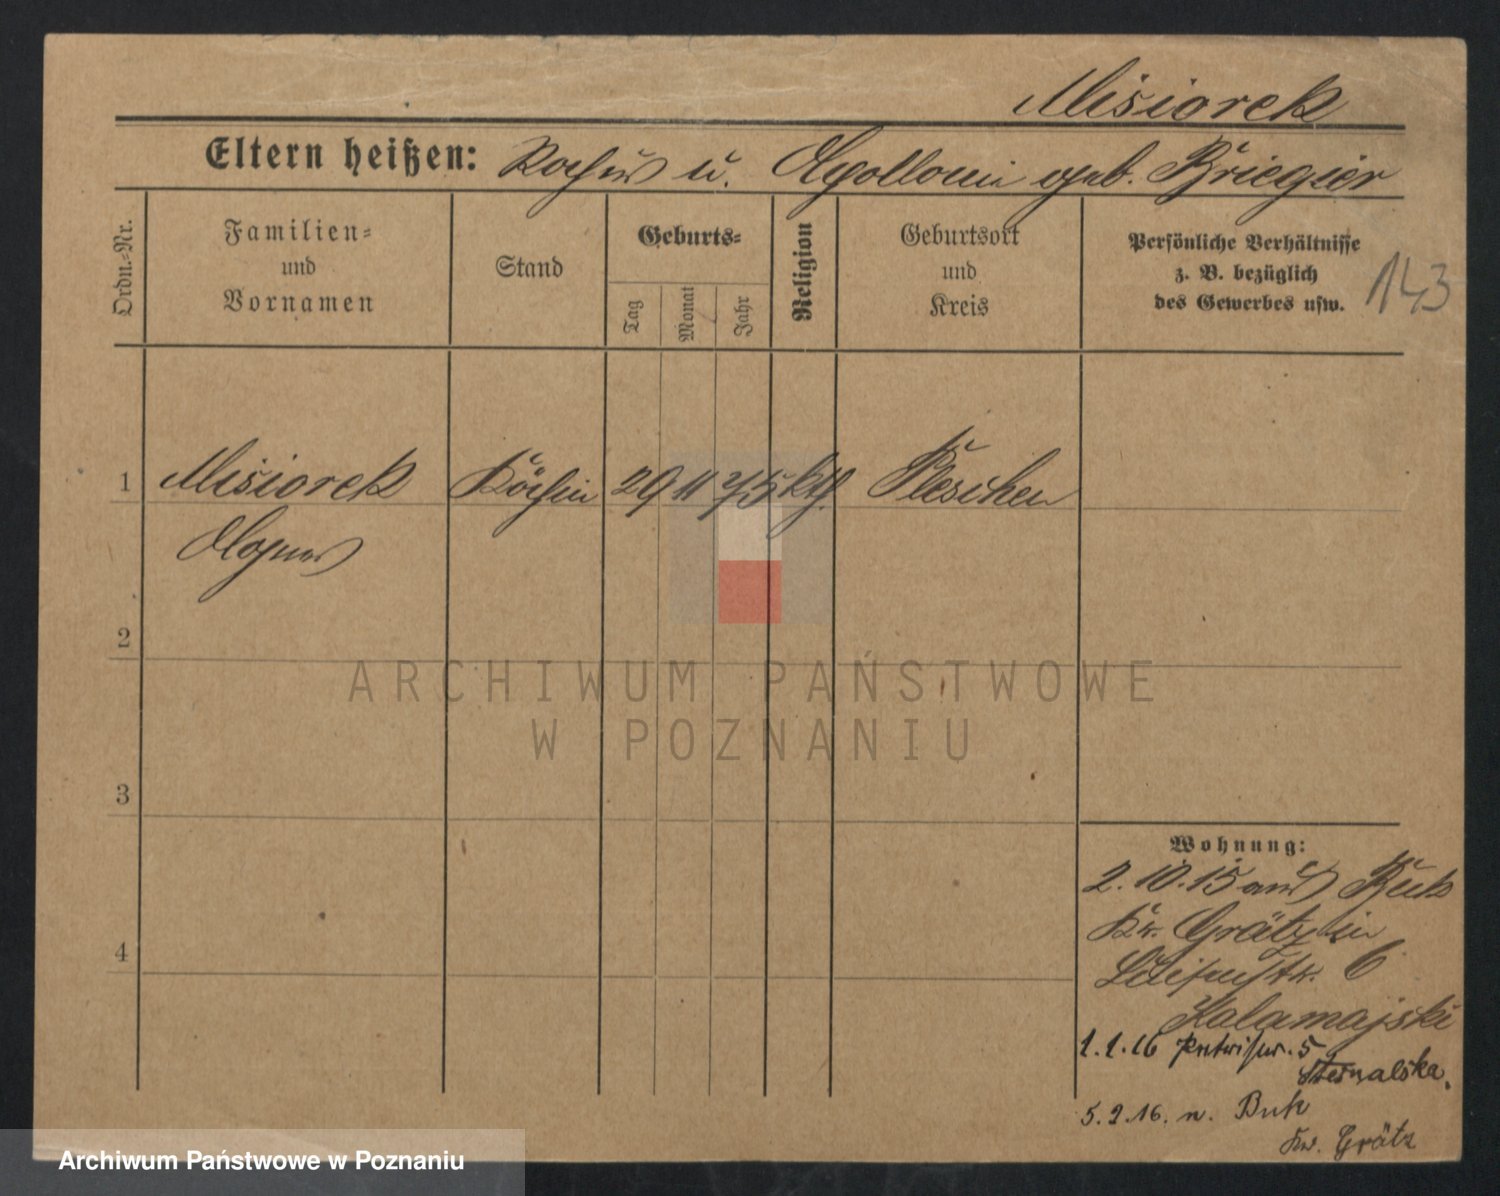 Misiorek
Eltern heißen: Rochus u. Apollonia geb. Kriegier
Ordn.-Nr.
Familien-
und
Vornamen
Stand
Geburts-
Tag
Monat
Jahr
Religion
Geburtsort
und
Kreis
Persönliche Verhältnisse
z. B. bezüglich
des Gewerbes usw.
143
1 Misiorek Köchin 29 11 75 kth. Pleschen
Agnes
2
3
4
Wohnung:
2.10.15 aus Buk
Kr. Grätz in
Luisenstr. 6
Kalamajski
1.1.16 5
5.2.16. n. Buk
Kr. Grätz
ARCHIWUM PAŃSTWOWE
W POZNANIU
Archiwum Państwowe w Poznaniu